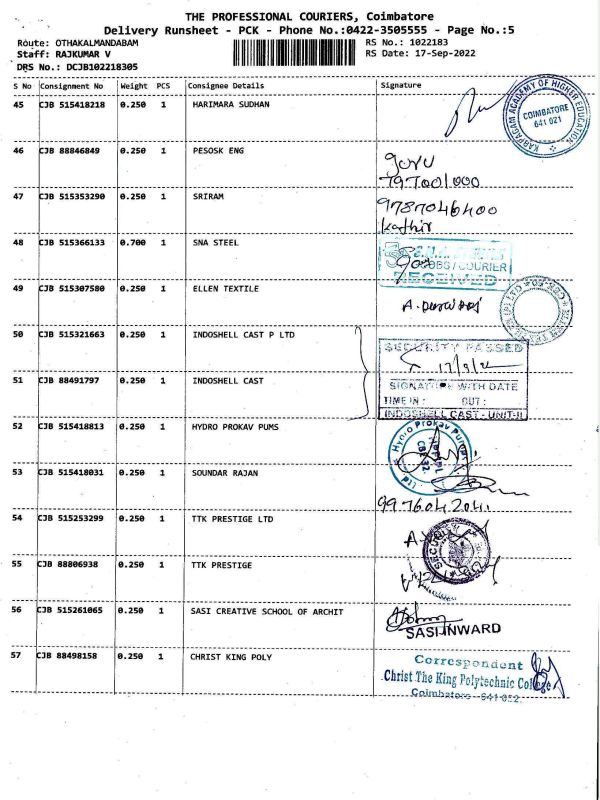 THE PROFESSIONAL COURIERS, Coimbatore
Delivery Runsheet - PCK - Phone No.:0422-3505555 - Page No.:5
Route: OTHAKALMANDABAM RS No.: 1022183
Staff: RAJKUMAR V RS Date: 17-Sep-2022
DRS No.: DCJB102218305
S No Consignment No Weight PCS Consignee Details Signature
45 CJB 515418218 0.250 1 HARIMARA SUDHAN
KARPAGAM ACADEMY OF HIGHER EDUCATION
COIMBATORE
641 021
46 CJB 88846849 0.250 1 PESOSK ENG
47 CJB 515353290 0.250 1 SRIRAM
9787046400
Kathir
48 CJB 515366133 0.700 1 SNA STEEL
COURIER
RECEIVED
49 CJB 515307580 0.250 1 ELLEN TEXTILE
50 CJB 515321663 0.250 1 INDOSHELL CAST P LTD
SECURITY PASSED
51 CJB 88491797 0.250 1 INDOSHELL CAST
SIGNATURE WITH DATE
TIME IN : OUT :
INDOSHELL CAST - UNIT-II
52 CJB 515418813 0.250 1 HYDRO PROKAV PUMS
Hydro Prokav Pumps
53 CJB 515418031 0.250 1 SOUNDAR RAJAN
9976042041
54 CJB 515253299 0.250 1 TTK PRESTIGE LTD
SECURITY
55 CJB 88806938 0.250 1 TTK PRESTIGE
56 CJB 515261065 0.250 1 SASI CREATIVE SCHOOL OF ARCHIT
SASI INWARD
57 CJB 88498158 0.250 1 CHRIST KING POLY
Correspondent
Christ The King Polytechnic College
Coimbatore - 641 032.